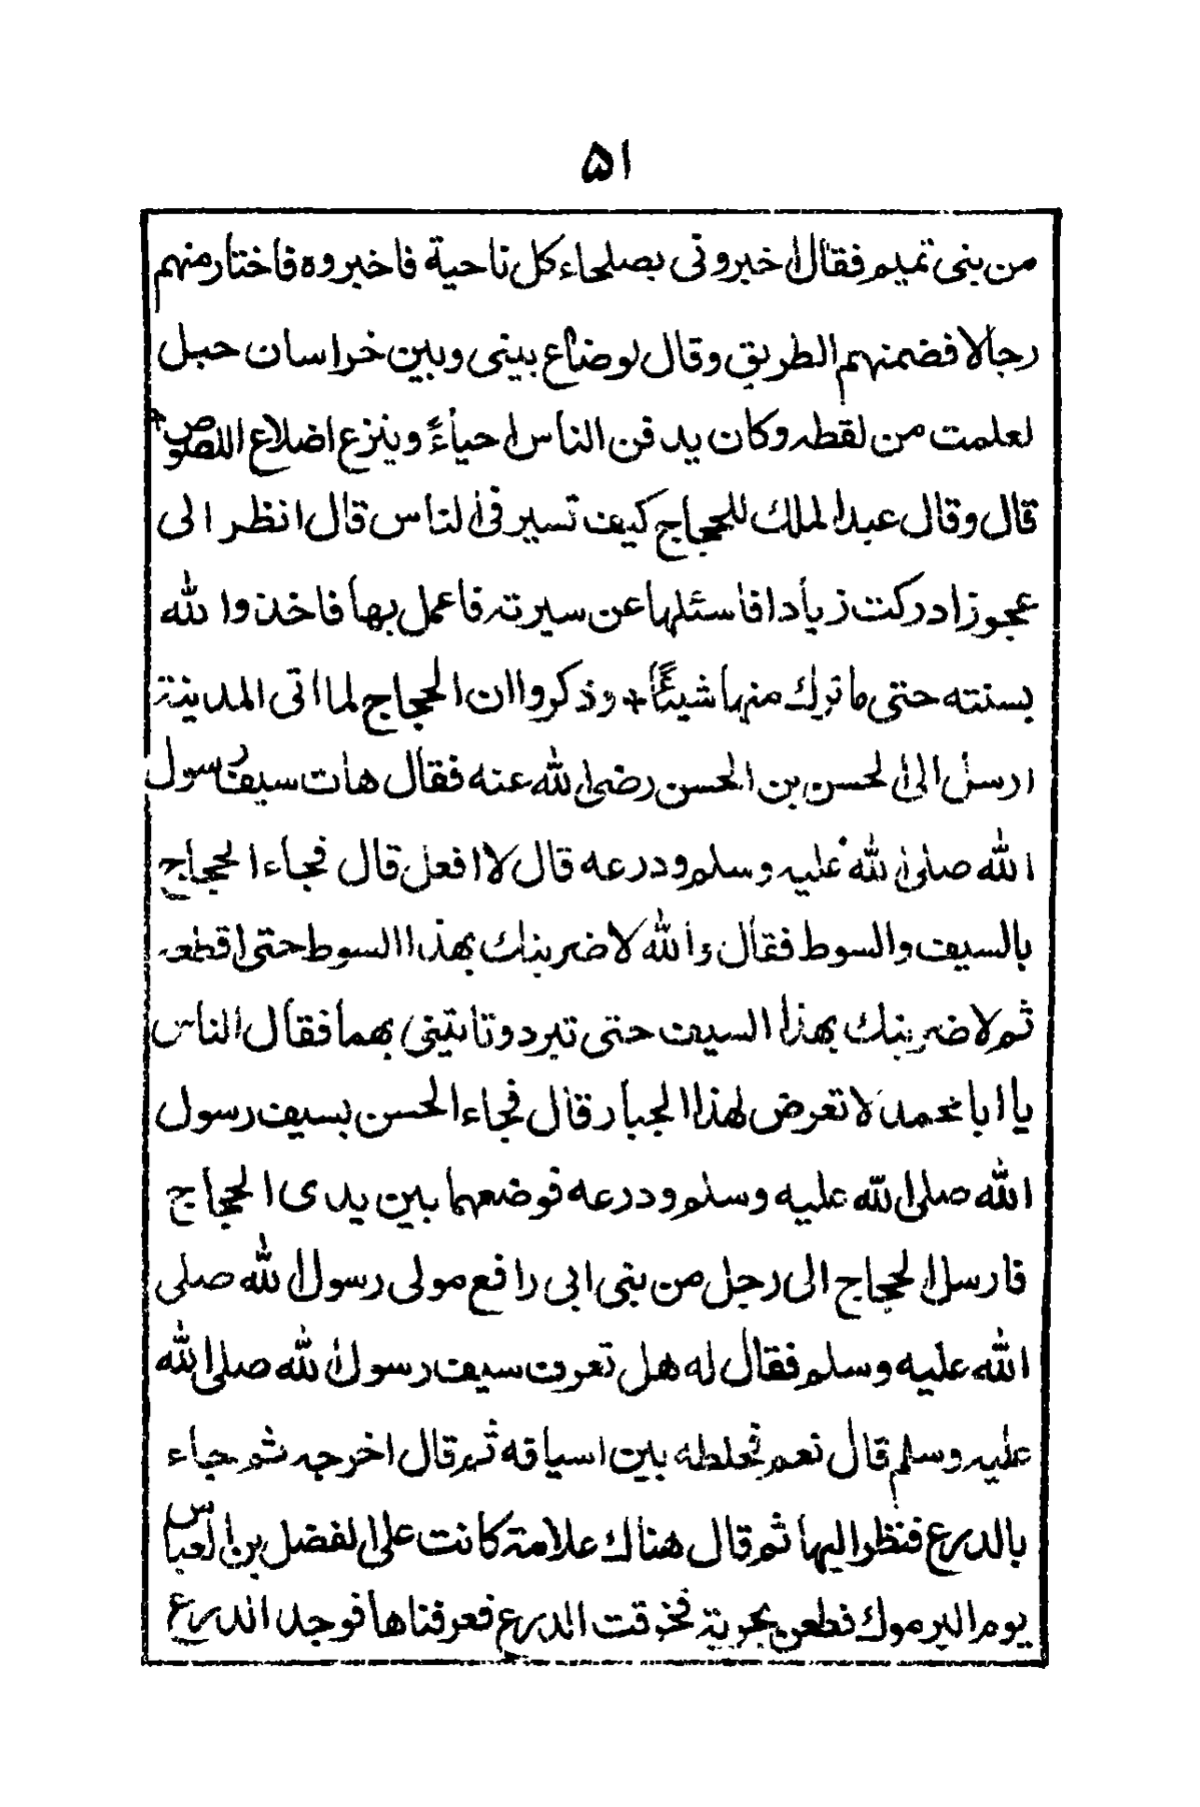 ۵۱
من بنى تميم فقال اخبرونى بصلحاء كل ناحية فاخبروه فاختار منهم
رجالا فضمنهم الطريق وقال لوضاع بينى وبين خراسان حبل
لعلمت من لقطه وكان يدفن الناس احياءً وينزع اضلاع اللصوص +
قال وقال عبد الملك للحجاج كيف تسير فى الناس قال انظر الى
عجوز ادركت زيادا فاسئلها عن سيرته فاعمل بها فاخذ والله
بسنته حتى ما ترك منها شيئًا + وذكروا ان الحجاج لما اتى المدينة
ارسل الى الحسن بن الحسن رضى الله عنه فقال هات سيف رسول
الله صلى الله عليه وسلم ودرعه قال لا افعل قال فجاء الحجاج
بالسيف والسوط فقال والله لاضربنك بهذا السوط حتى اقطعه
ثم لاضربنك بهذا السيف حتى تبرد وتاتينى بهما فقال الناس
يا ابا محمد لا تعرض لهذا الجبار قال فجاء الحسن بسيف رسول
الله صلى الله عليه وسلم ودرعه فوضعهما بين يدى الحجاج
فارسل الحجاج الى رجل من بنى ابى رافع مولى رسول الله صلى
الله عليه وسلم فقال له هل تعرف سيف رسول الله صلى الله
عليه وسلم قال نعم فخلطه بين اسيافه ثم قال اخرجه ثم جاء
بالدرع فنظر اليها ثم قال هناك علامة كانت على الفضل بن العباس
يوم اليرموك فطعن بحربة فخرقت الدرع فعرفناها فوجد الدرع